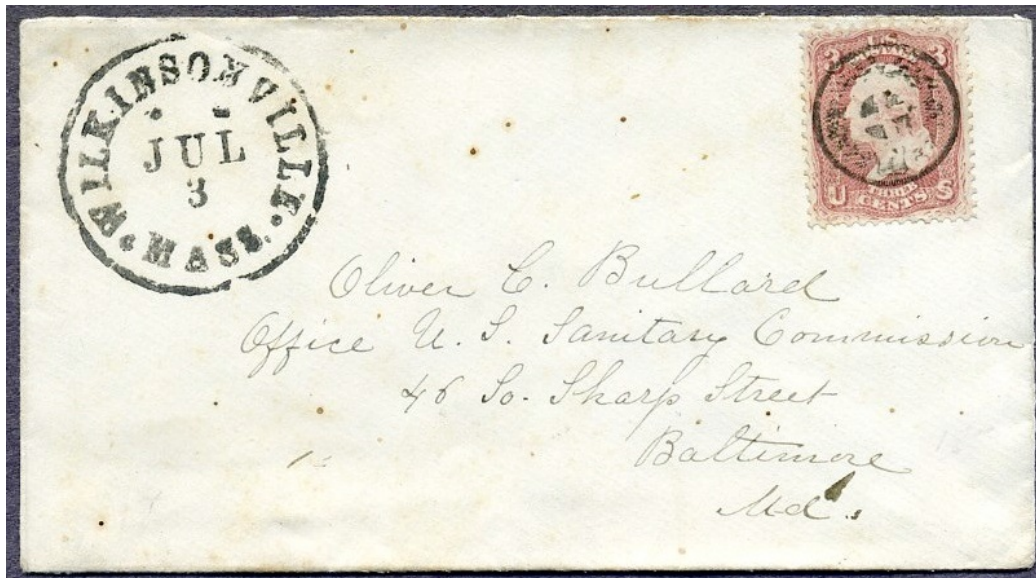 WILKINSONVILLE.
JUL
3
MASS.
3 U.S. 3
U THREE CENTS S
Oliver C. Bullard
Office U. S. Sanitary Commission
46 So. Sharp Street
Baltimore
Md.